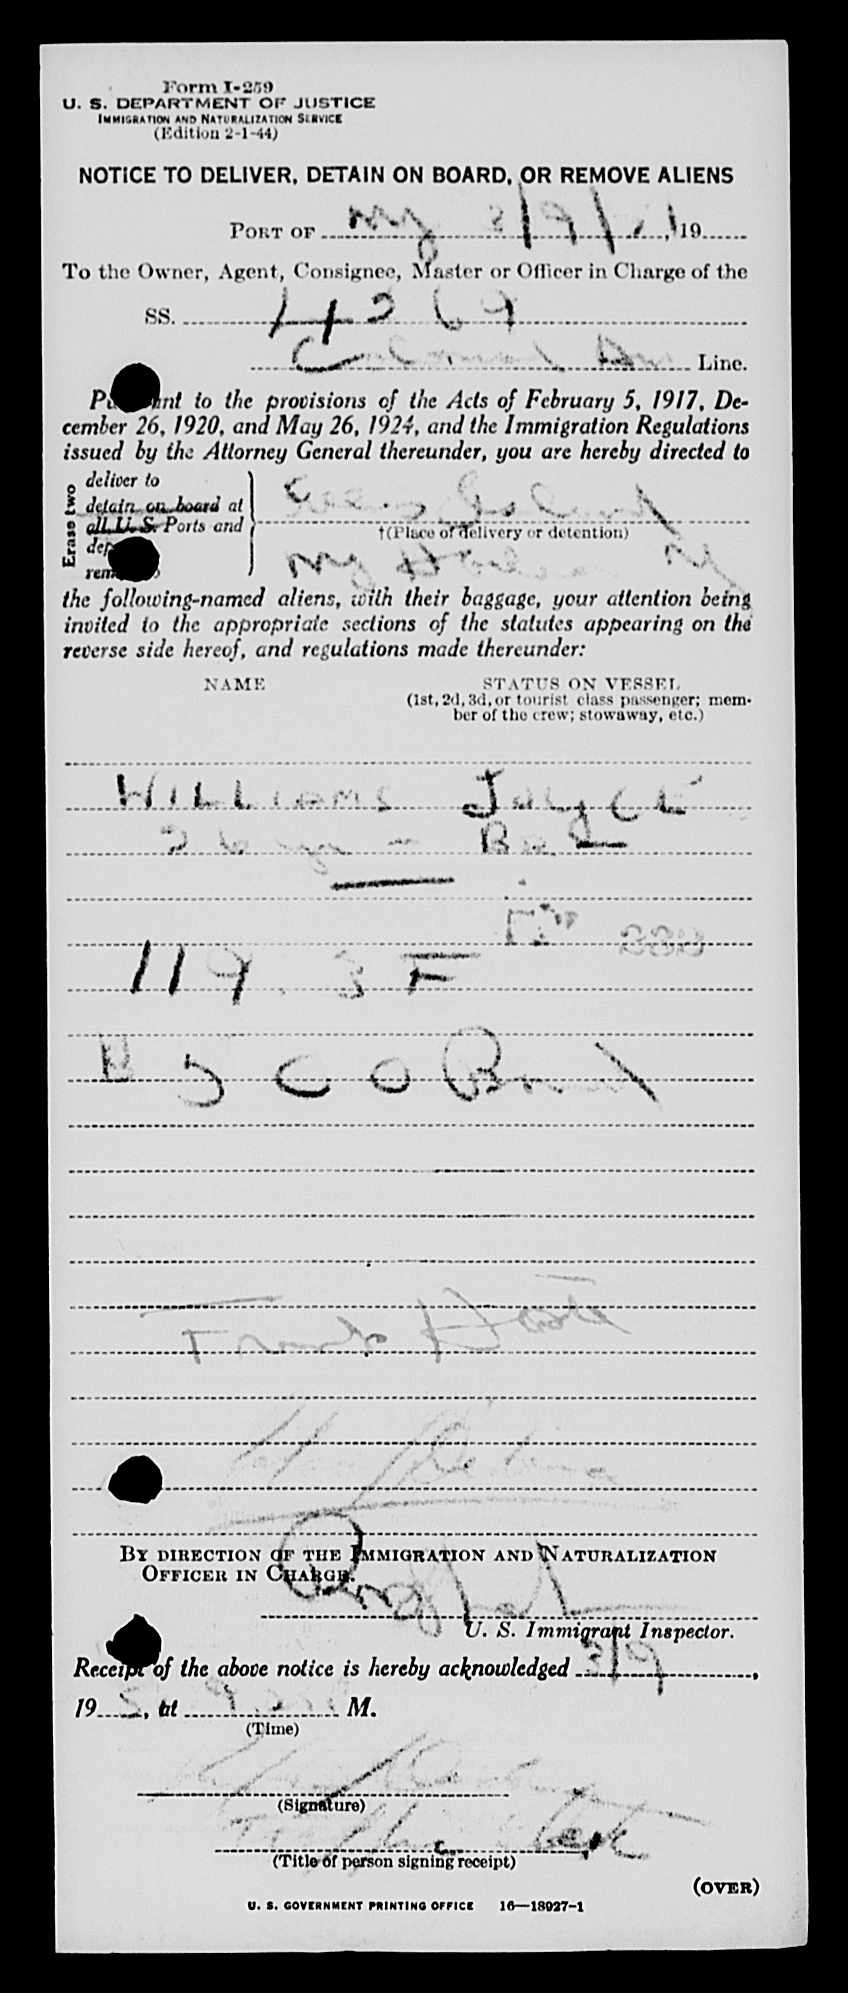 Form I-259
U. S. DEPARTMENT OF JUSTICE
IMMIGRATION AND NATURALIZATION SERVICE
(Edition 2-1-44)
NOTICE TO DELIVER, DETAIN ON BOARD, OR REMOVE ALIENS
PORT OF NY 3/9/ , 19
To the Owner, Agent, Consignee, Master or Officer in Charge of the
SS. 45269
Colonial Air Line.
Pursuant to the provisions of the Acts of February 5, 1917, De-
cember 26, 1920, and May 26, 1924, and the Immigration Regulations
issued by the Attorney General thereunder, you are hereby directed to
Erase two
deliver to
detain on board at
all U. S. Ports and
Ellis Island
†(Place of delivery or detention)
NY Harbor NY
the following-named aliens, with their baggage, your attention being
invited to the appropriate sections of the statutes appearing on the
reverse side hereof, and regulations made thereunder:
NAME
STATUS ON VESSEL
(1st, 2d, 3d, or tourist class passenger; mem-
ber of the crew; stowaway, etc.)
WILLIAMS JOYCE
26 yr -
119. 3 F
Frank
BY DIRECTION OF THE IMMIGRATION AND NATURALIZATION
OFFICER IN CHARGE.
U. S. Immigrant Inspector.
Receipt of the above notice is hereby acknowledged 3/9,
19 5 , at M.
(Time)
(Signature)
(Title of person signing receipt)
(OVER)
U. S. GOVERNMENT PRINTING OFFICE 16—18027-1